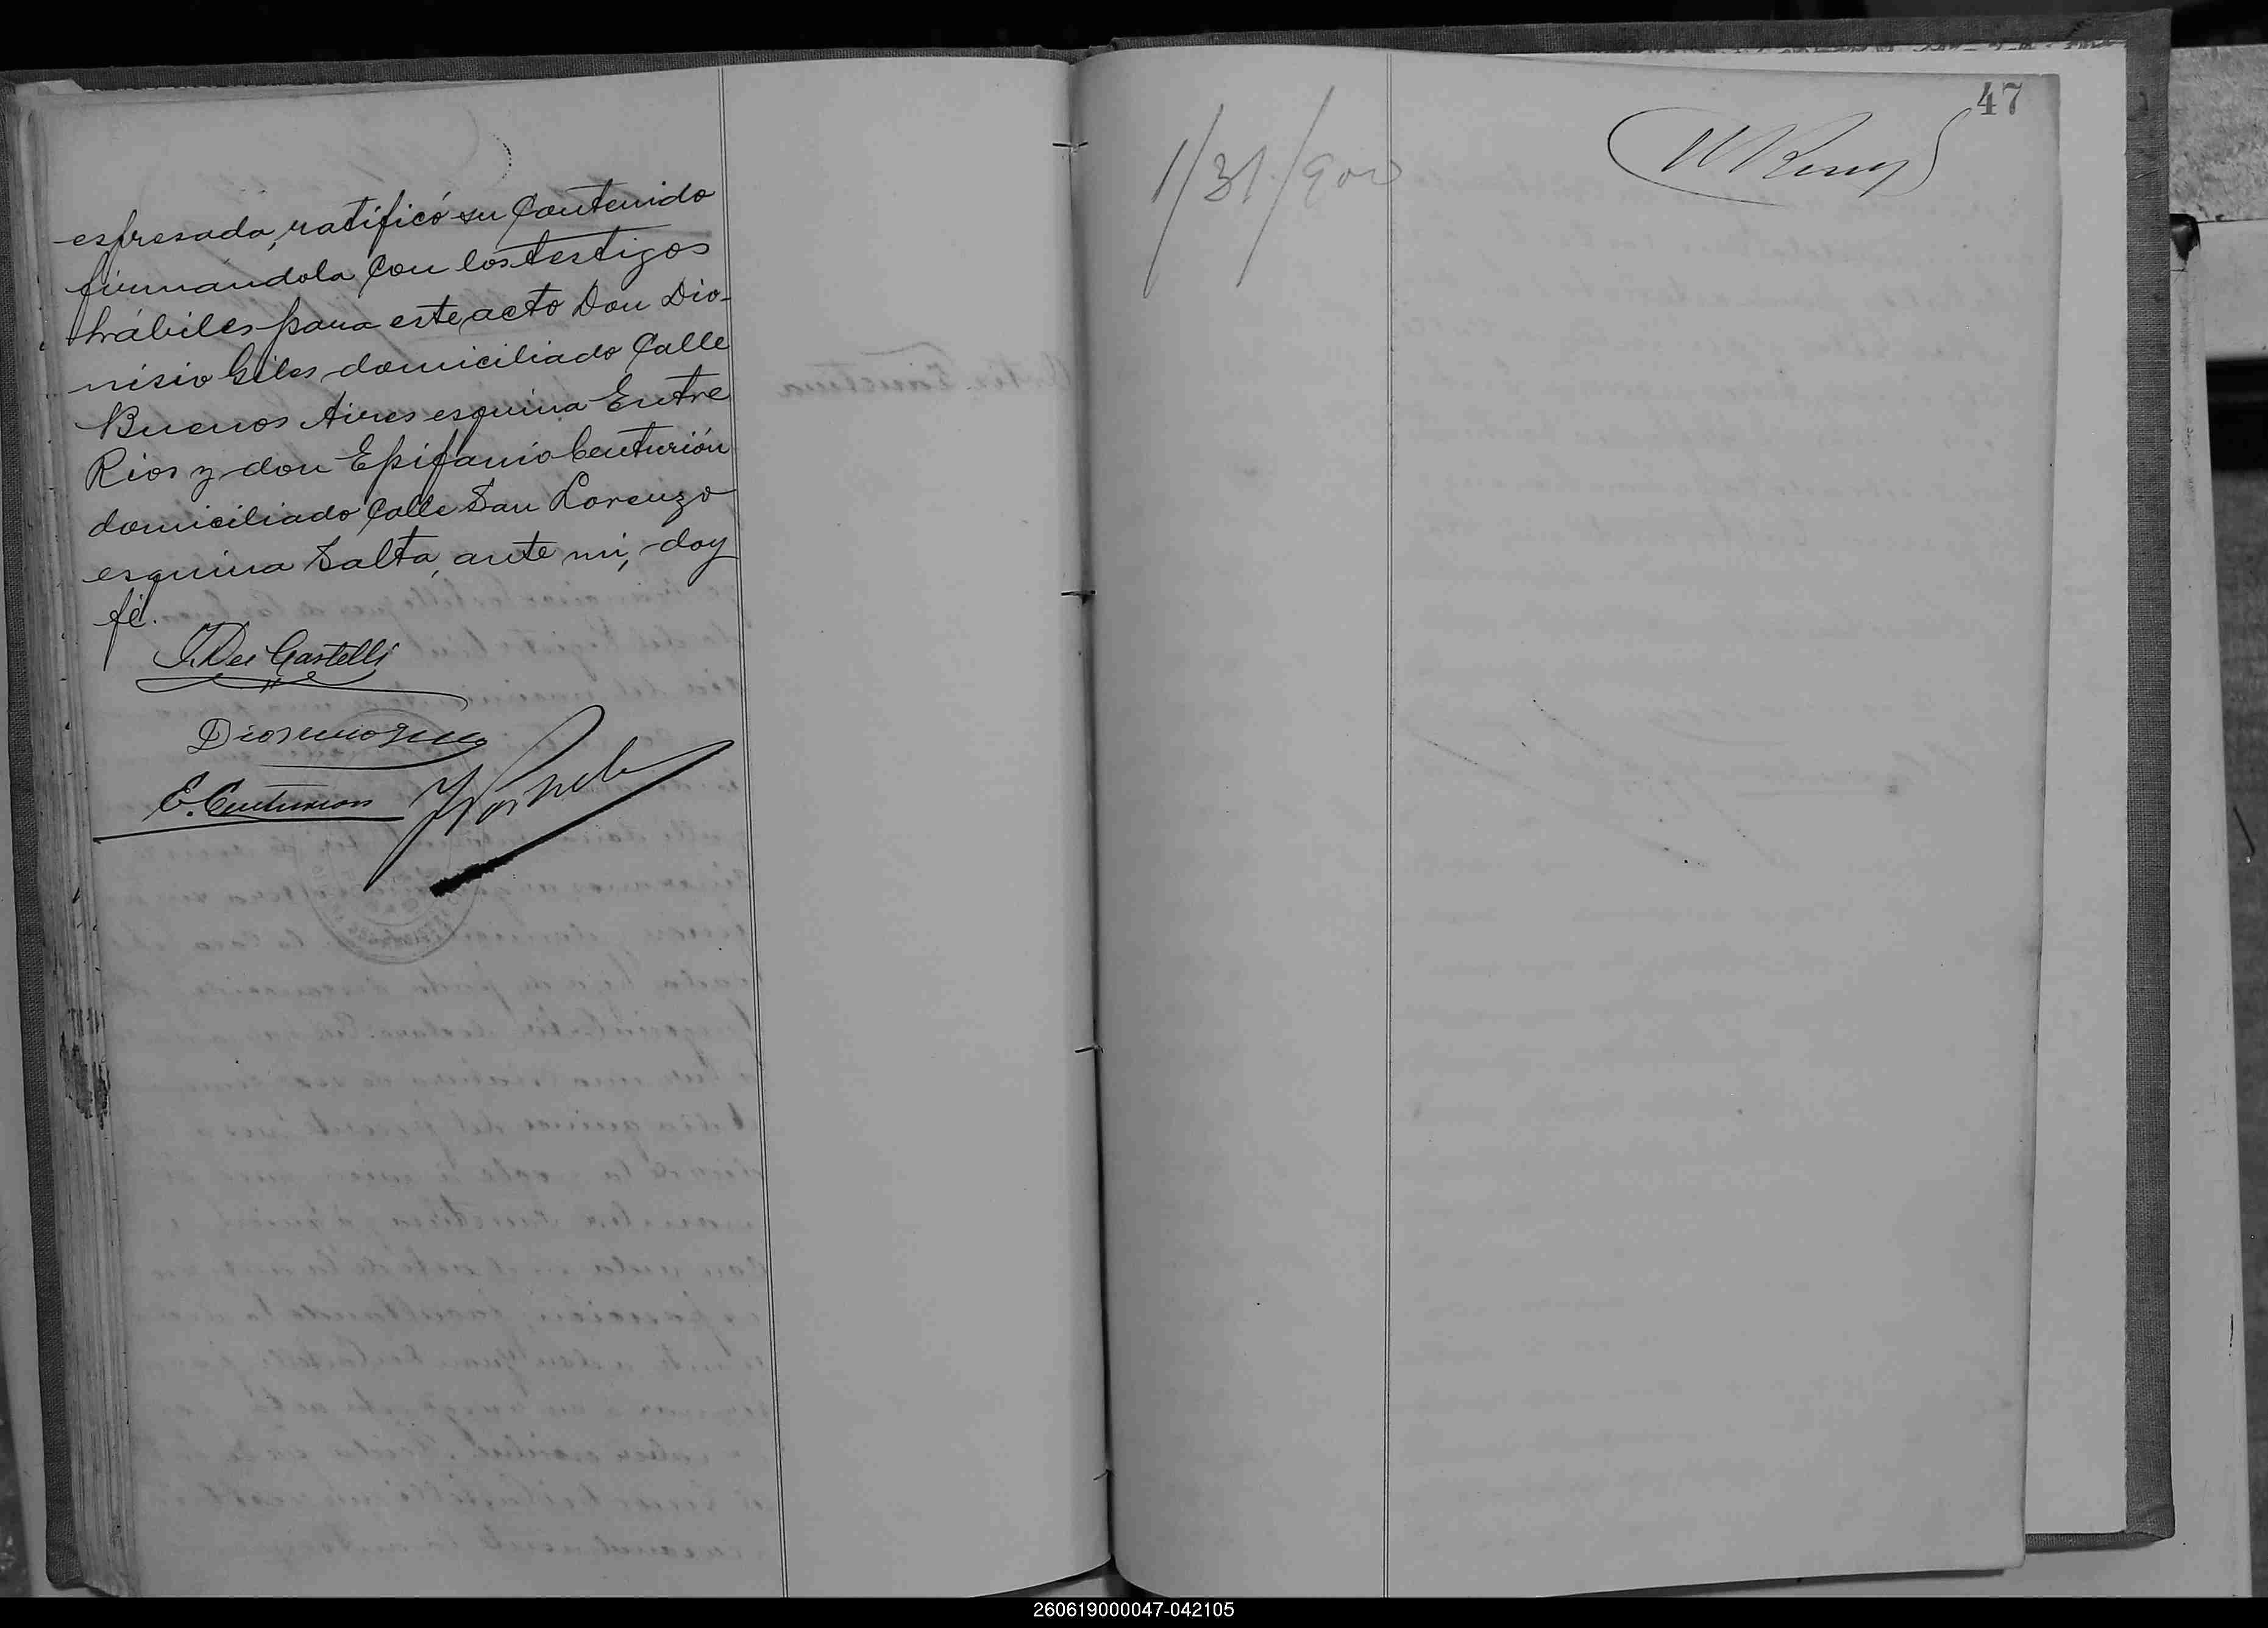 espresada, ratificó su contenido
firmándola con los testigos
hábiles para este acto Don Dio-
nisio Giles domiciliado calle
Buenos Aires esquina Entre
Rios y don Epifanio Centurión
domiciliado calle San Lorenzo
esquina Salta, ante mi, doy
fé.
J. Dei Castelli
Dionisio
E. Centurion
47
1/31/900
260619000047-042105